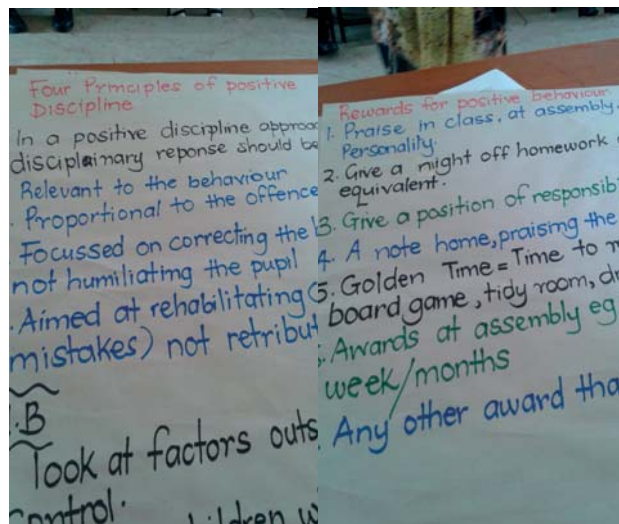 Four Principles of positive
Discipline
In a positive discipline approac
disciplainary reponse should be
Relevant to the behaviour
. Proportional to the offence
. Focussed on correcting the
not humiliating the pupil
. Aimed at rehabilitating
mistakes) not retribut
.B
look at factors outs
control.
children w
Rewards for positive behaviour
1. Praise in class, at assembly.
Personality.
2. Give a night off homework
equivalent.
3. Give a position of responsib
4. A note home, praising the
5. Golden Time = Time to
board game, tidy room,
. Awards at assembly eg
week/months
. Any other award tha